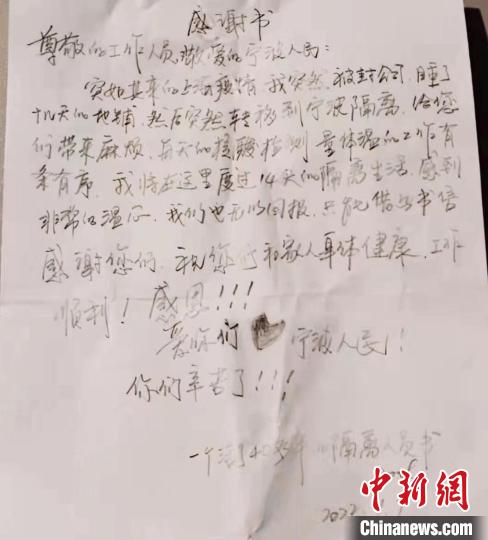 感谢书
尊敬的工作人员,敬爱的宁波人民:
突如其来的上海疫情,我突然被封公司,睡了
十几天的地铺,然后突然转移到宁波隔离,给您
们带来麻烦,每天的核酸检测,量体温的工作有
条有序,我将在这里度过14天的隔离生活,感到
非常的温心,我们也无以回报,只能借此书信
感谢您们,祝您们和家人身体健康,工作
顺利!感恩!!!
爱你们 宁波人民!
你们辛苦了!!!
一个 40 隔离人员书
2022
中新网
Chinanews.com